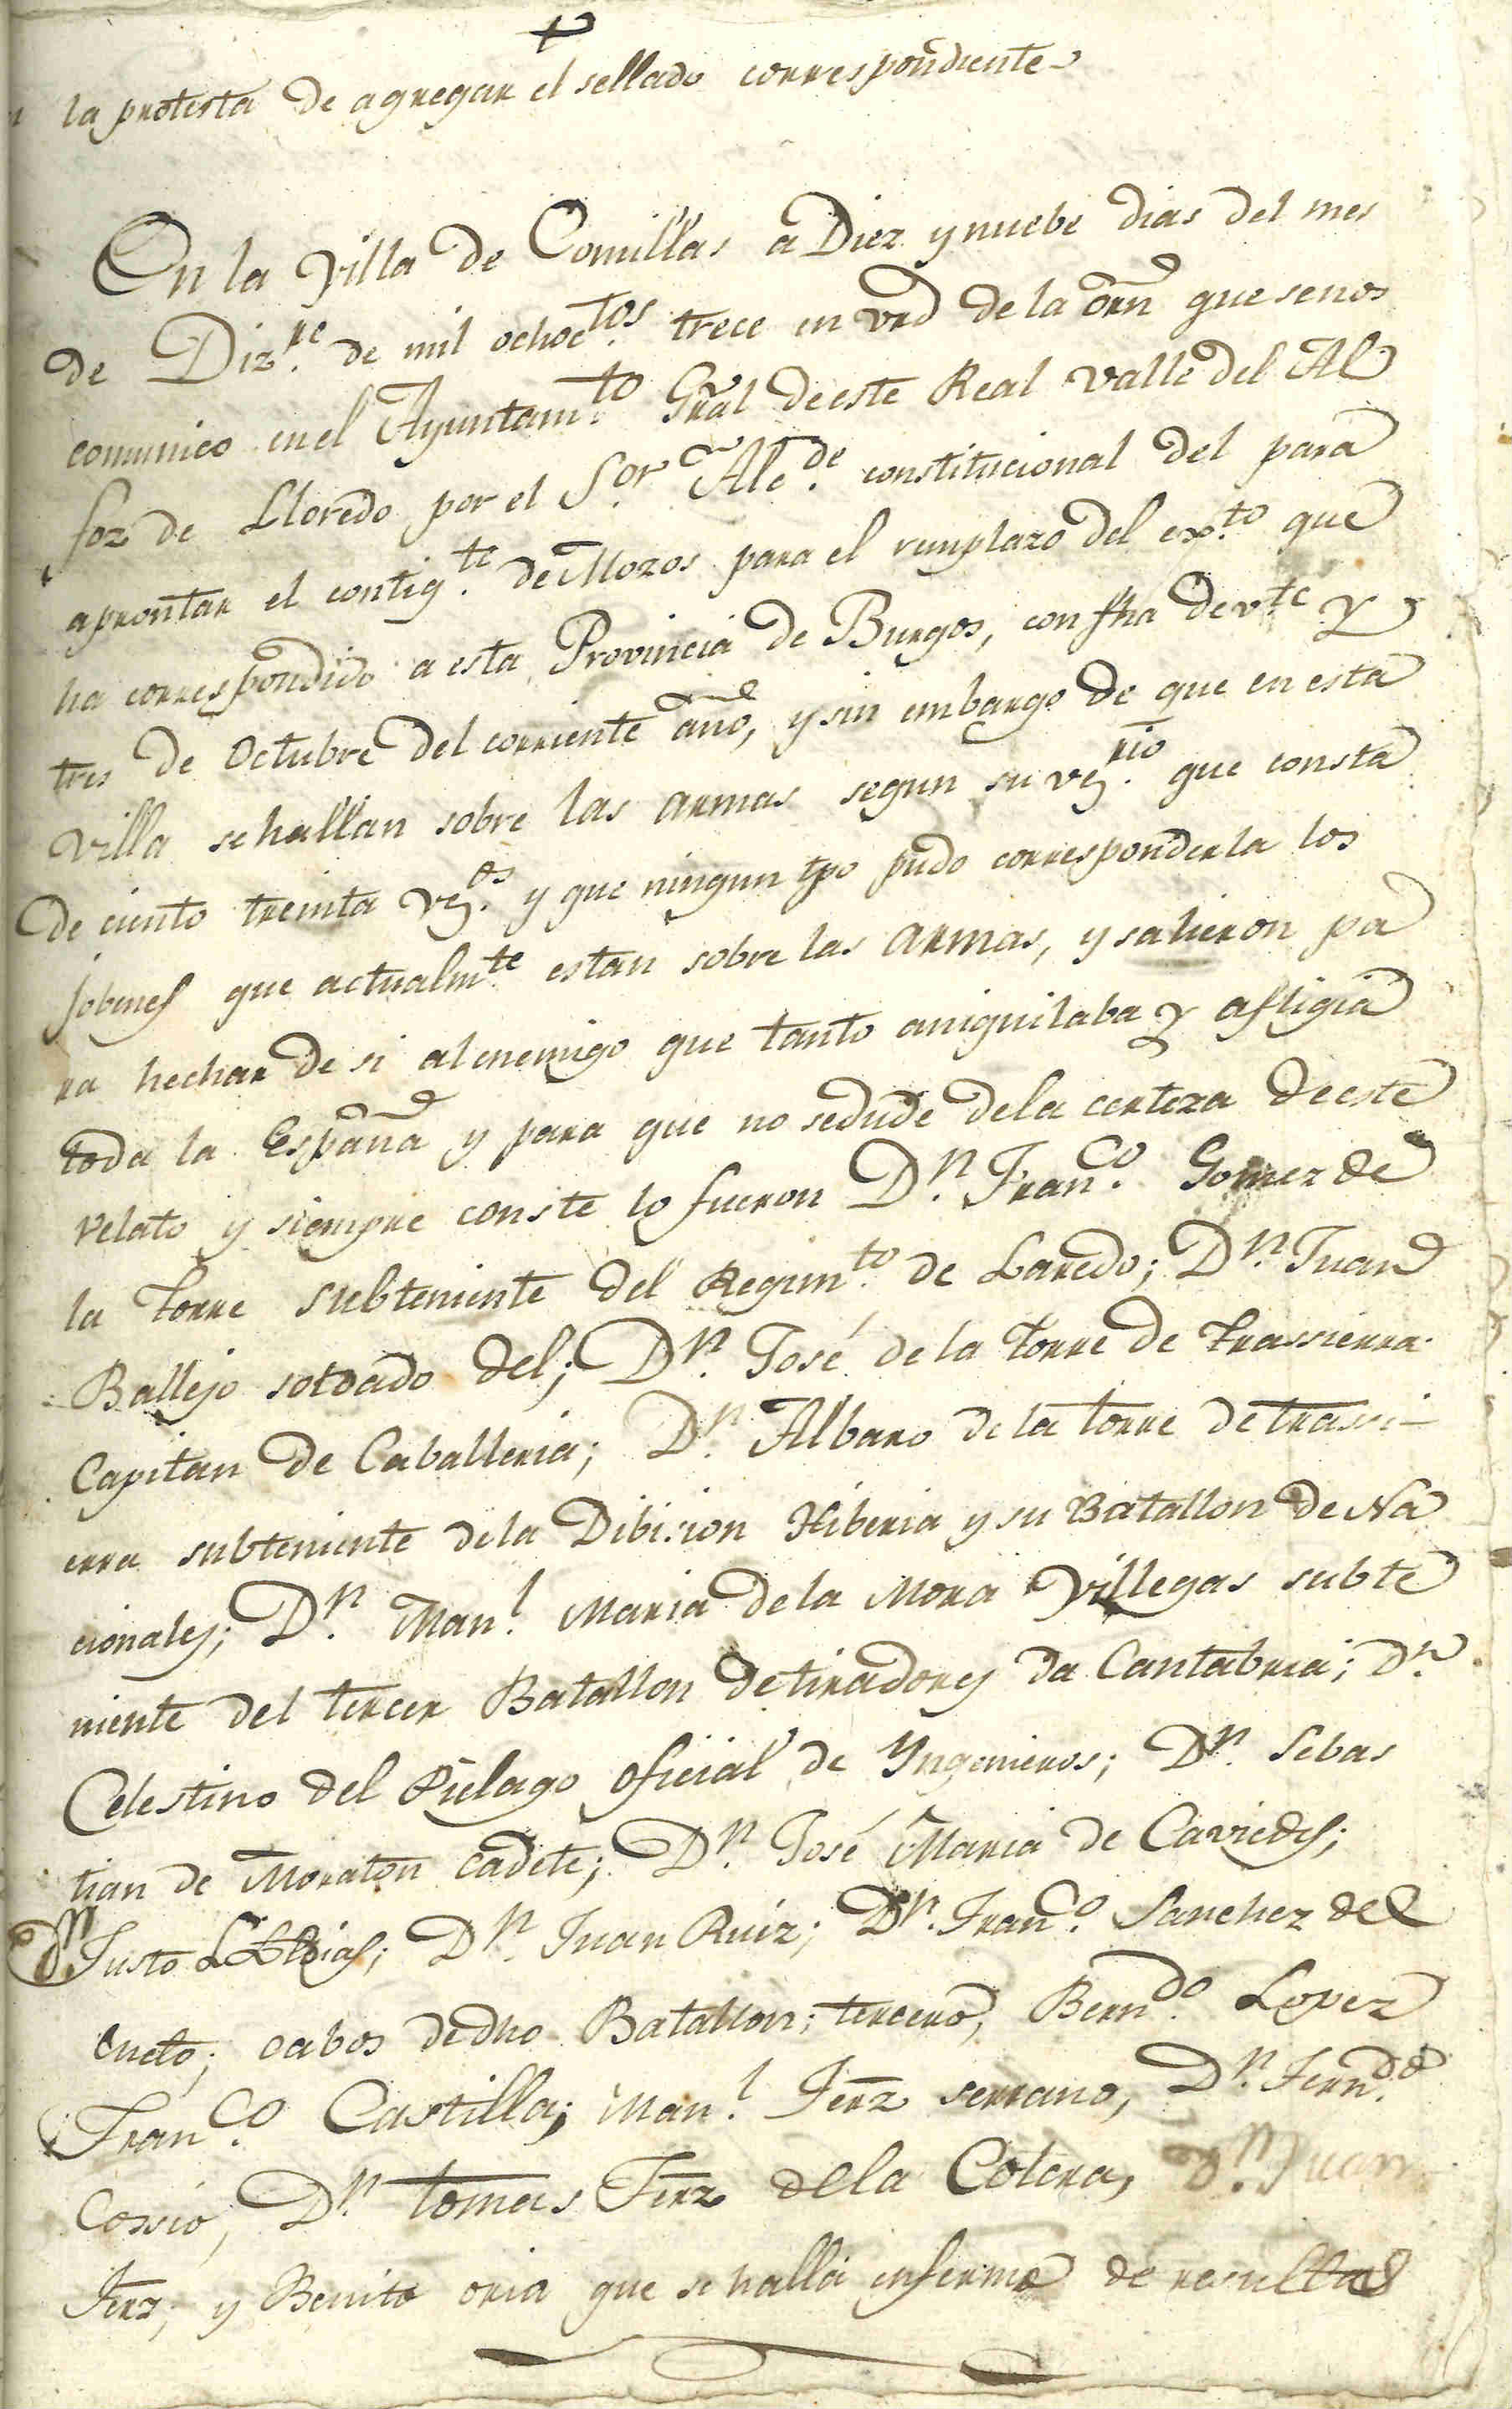 la protesta de agregar el sellado correspondiente
En la Villa de Comillas a Diez y nuebe dias del mes
de Diz.re de mil ochoc.tos trece en vrd de la orn que se nos
comunico en el Ayuntam.to Gral de este Real Valle del Al
foz de Lloredo por el S.or Alc.de constitucional del para
aprontar el contig.te de Mozos para el remplazo del ex.to que
ha correspondido a esta Provincia de Burgos, con fha de v.te y
tres de Octubre del corriente año, y sin embargo de que en esta
Villa se hallan sobre las armas segun su vez.rio que consta
De ciento treinta vez.os y que ningun tpo pudo corresponderla los
jobenes que actualm.te estan sobre las armas, y salieron pa
ra hechar de si al enemigo que tanto aniquilaba y afligia
toda la España y para que no se dude de la certeza de este
relato y siempre conste lo fueron D.n Fran.co Gomez de
la Torre subteniente del Regim.to de Laredo; D.n Juan
Ballejo soldado del; D.n José de la Torre de Trassierra
Capitan de Caballeria; D.n Albaro de la Torre de trassi-
erra subteniente de la Dibision Hiberia y su Batallon de Na
cionales; D.n Man.l Maria de la Mora Villegas subte
niente del tercer Batallon de tiradores da Cantabria; D.n
Celestino del Pielago oficial de Yngenieros; D.n Sebas
tian de Moraton cadete; D.n José Maria de Caviedes;
D.n Justo; D.n Juan Ruiz; D.n Fran.co Sanchez del
cueto; cabos de dho Batallon; tercero, Bern.do Lopez
Fran.co Castilla; Man.l Ferz serrano, D.n Fern.do
Cossio, D.n tomas Ferz de la Cotera, D.n Juan
Ferz, y Benito oria que se halla enfermo de resultas